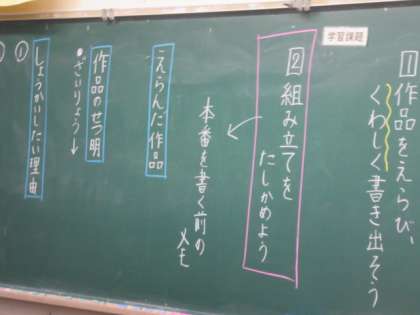 学習課題
1 作品をえらび、
くわしく書き出そう
2 組み立てを
たしかめよう
本番を書く前の
メモ
えらんだ作品
作品のせつ明
・ざいりょう→
しょうかいしたい理由
①